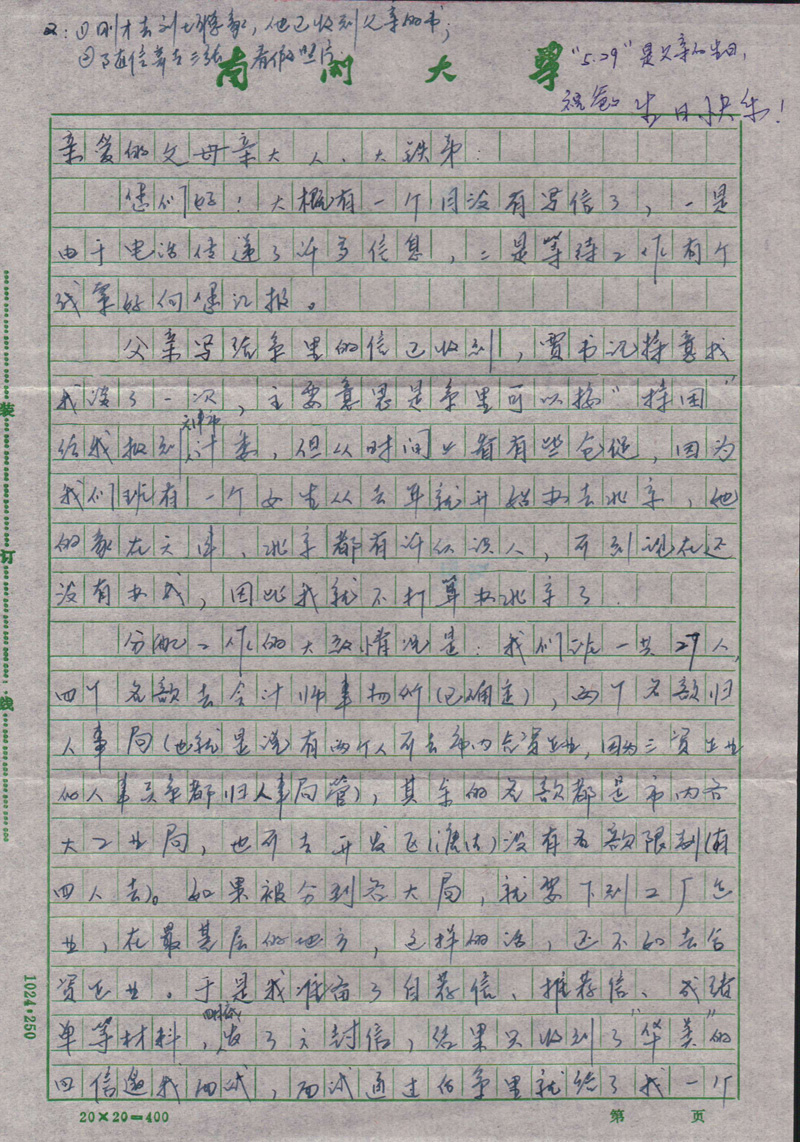 又:①刚才去刘士铎家,他已收到父亲的书;
②随信寄去三张 看你的照片。
南開大學
"5.29"是父亲的生日,
祝爸爸 生日快乐!
亲爱的父母亲大人、大铁弟:
您们好!大概有一个月没有写信了,一是
由于电话传递了许多信息,二是等待工作有个
结果好向您汇报。
父亲写给系里的信已收到,贾书记特意找
我谈了一次,主要意思是系里可以按"特困"
给我报到天津市计委,但从时间上看有些仓促,因为
我们班有一个女生从去年就开始办去北京,她
的家在天津,北京都有许多熟人,可到现在还
没有办成,因此我就不打算办北京了.
分配工作的大致情况是:我们班一共27人,
四个名额去会计师事务所(已确定),两个名额归
人事局(也就是说有两个人可去市内合资企业,因为三资企业
的人事关系都归人事局管),其余的名额都是市内各
大工业局,也可去开发区(塘沽)没有名额限制(有
四人去)。如果被分到各大局,就要下到工厂企
业,在最基层的地方,这样的话,还不如去合
资企业。于是我准备了自荐信、推荐信、成绩
单等材料,发了六封信,结果只收到了"华美"的
回信邀我面试,面试通过后系里就给了我一个
装
订
线
1024·250
20×20=400
第 页